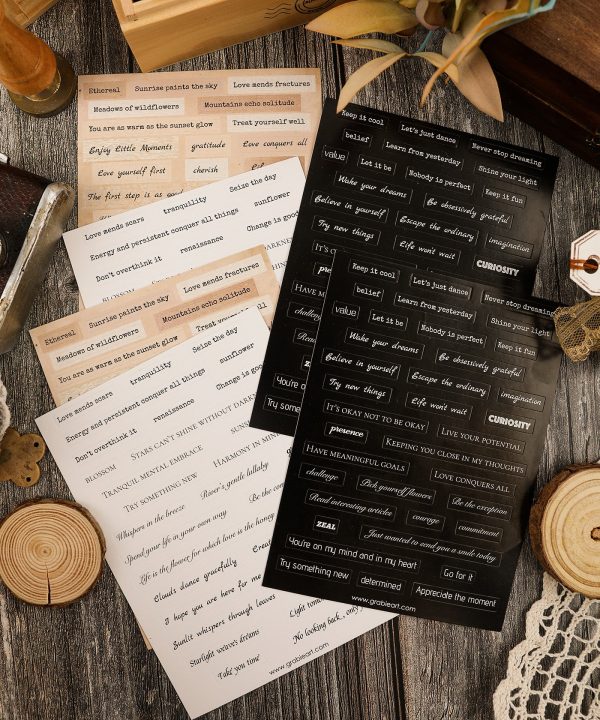 Ethereal Sunrise paints the sky Love mends fractures
Meadows of wildflowers Mountains echo solitude
You are as warm as the sunset glow Treat yourself well
Enjoy Little Moments gratitude Love conquers all
Love yourself first cherish
The first step is as good
Love mends scars tranquility Seize the day
Energy and persistent conquer all things sunflower
Don't overthink it renaissance Change is good
BLOSSOM
Ethereal Sunrise paints the sky Love mends fractures
Meadows of wildflowers Mountains echo solitude
You are as warm as the sunset glow Treat yourself
Love mends scars tranquility Seize the day
Energy and persistent conquer all things sunflower
Don't overthink it renaissance Change is good
BLOSSOM STARS CAN'T SHINE WITHOUT DARKNE
TRANQUIL MENTAL EMBRACE
TRY SOMETHING NEW HARMONY IN MIND
Whispers in the breeze River's gentle lullaby
Spend your life in your own way Be the
Life is the flower for which love is the honey
Clouds dance gracefully
I hope you are here for me
Sunlit whispers through leaves
Starlight weave's dreams Light
Take you time No looking back, only
www.grabieart.com
Keep it cool Let's just dance Never stop dreaming
belief Learn from yesterday Shine your light
value Let it be Nobody is perfect Keep it fun
Wake your dreams Be obsessively grateful
Believe in yourself Escape the ordinary imagination
Try new things Life won't wait CURIOSITY
IT'S
HAVE M
Read
You're o
Try some
Keep it cool Let's just dance Never stop dreaming
belief Learn from yesterday Shine your light
value Let it be Nobody is perfect Keep it fun
Wake your dreams Be obsessively grateful
Believe in yourself Escape the ordinary imagination
Try new things Life won't wait CURIOSITY
IT'S OKAY NOT TO BE OKAY LIVE YOUR POTENTIAL
presence KEEPING YOU CLOSE IN MY THOUGHTS
HAVE MEANINGFUL GOALS LOVE CONQUERS ALL
challenge Pick yourself flowers Be the exception
Read interesting articles courage commitment
ZEAL Just wanted to send you a smile today
You're on my mind and in my heart Go for it
Try something new determined Appreciate the moment
www.grabieart.com